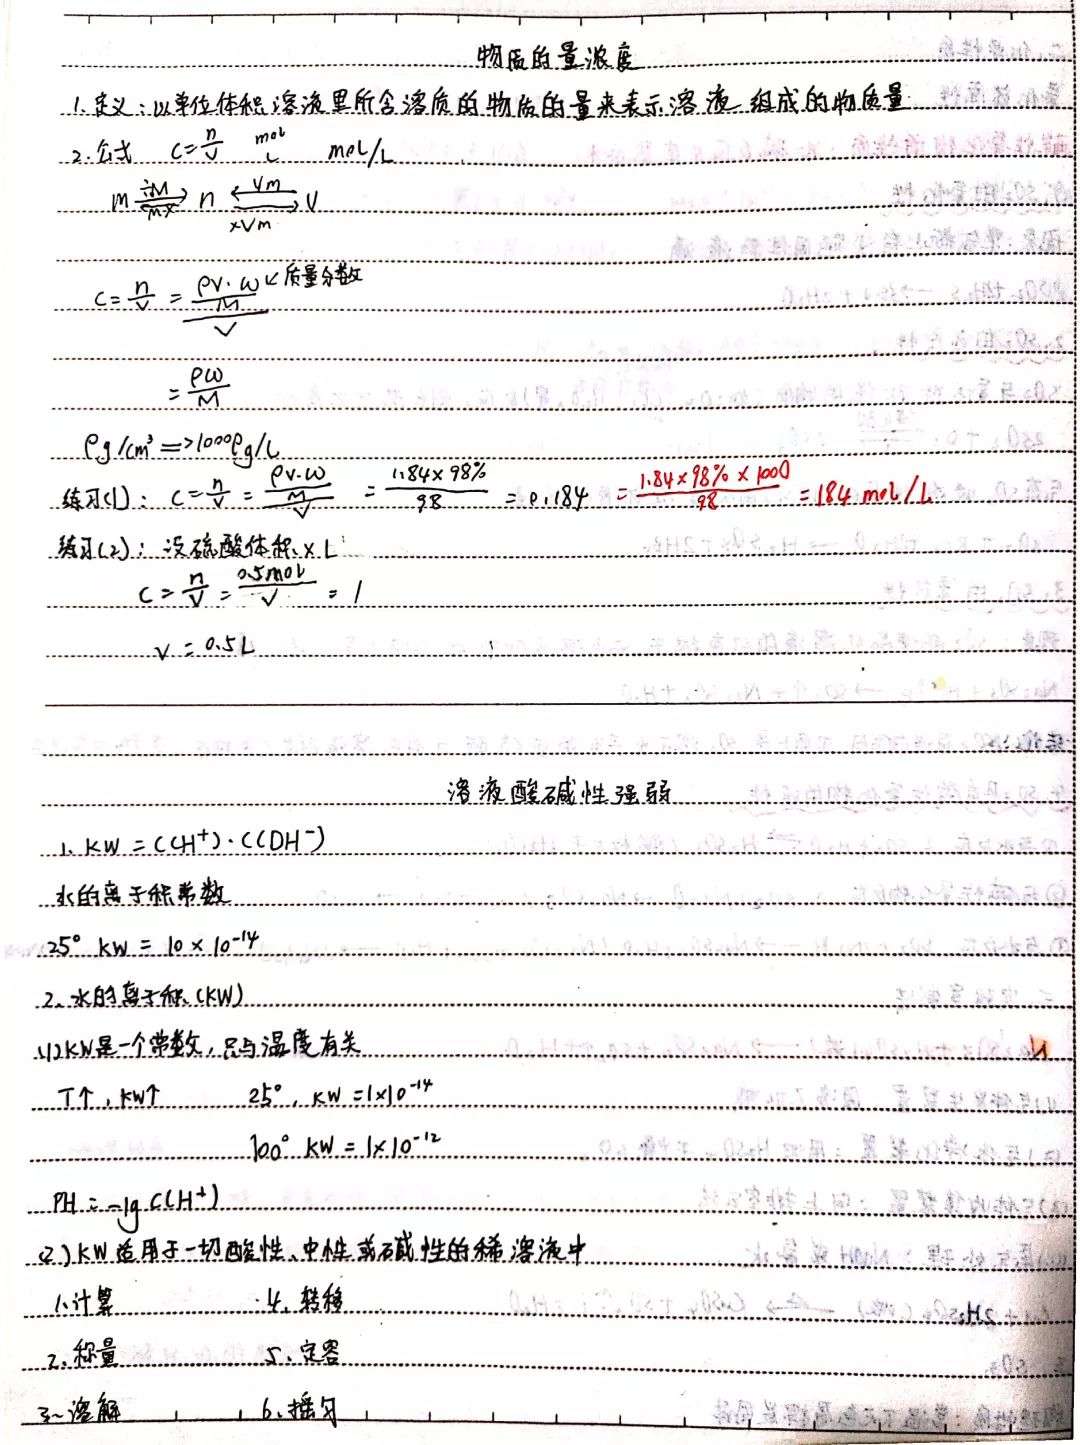 物质的量浓度
1. 定义：以单位体积溶液里所含溶质的物质的量来表示溶液组成的物质量
2. 公式 C=n/V mol/L mol/L
m ÷M/M× n Vm/×Vm V
C=n/V=(ρV·ω/M)/V ←质量分数
=ρω/M
ρg/cm³=>1000ρg/L
练习(1): C=n/V=(ρV·ω/M)/V=1.84×98%/98=0.184 =1.84×98%×1000/98=184 mol/L
练习(2): 设硫酸体积×L
C=n/V=0.5mol/V=1
V=0.5L
溶液酸碱性强弱
1. KW=C(H⁺)·C(OH⁻)
水的离子积常数
25° KW=10×10⁻¹⁴
2. 水的离子积(KW)
(1)KW是一个常数，只与温度有关
T↑,KW↑ 25°, KW=1×10⁻¹⁴
100° KW=1×10⁻¹²
PH=-lg C(H⁺)
(2)KW适用于一切酸性、中性或碱性的稀溶液中
1.计算 4.转移
2.称量 5.定容
3.溶解 6.摇匀